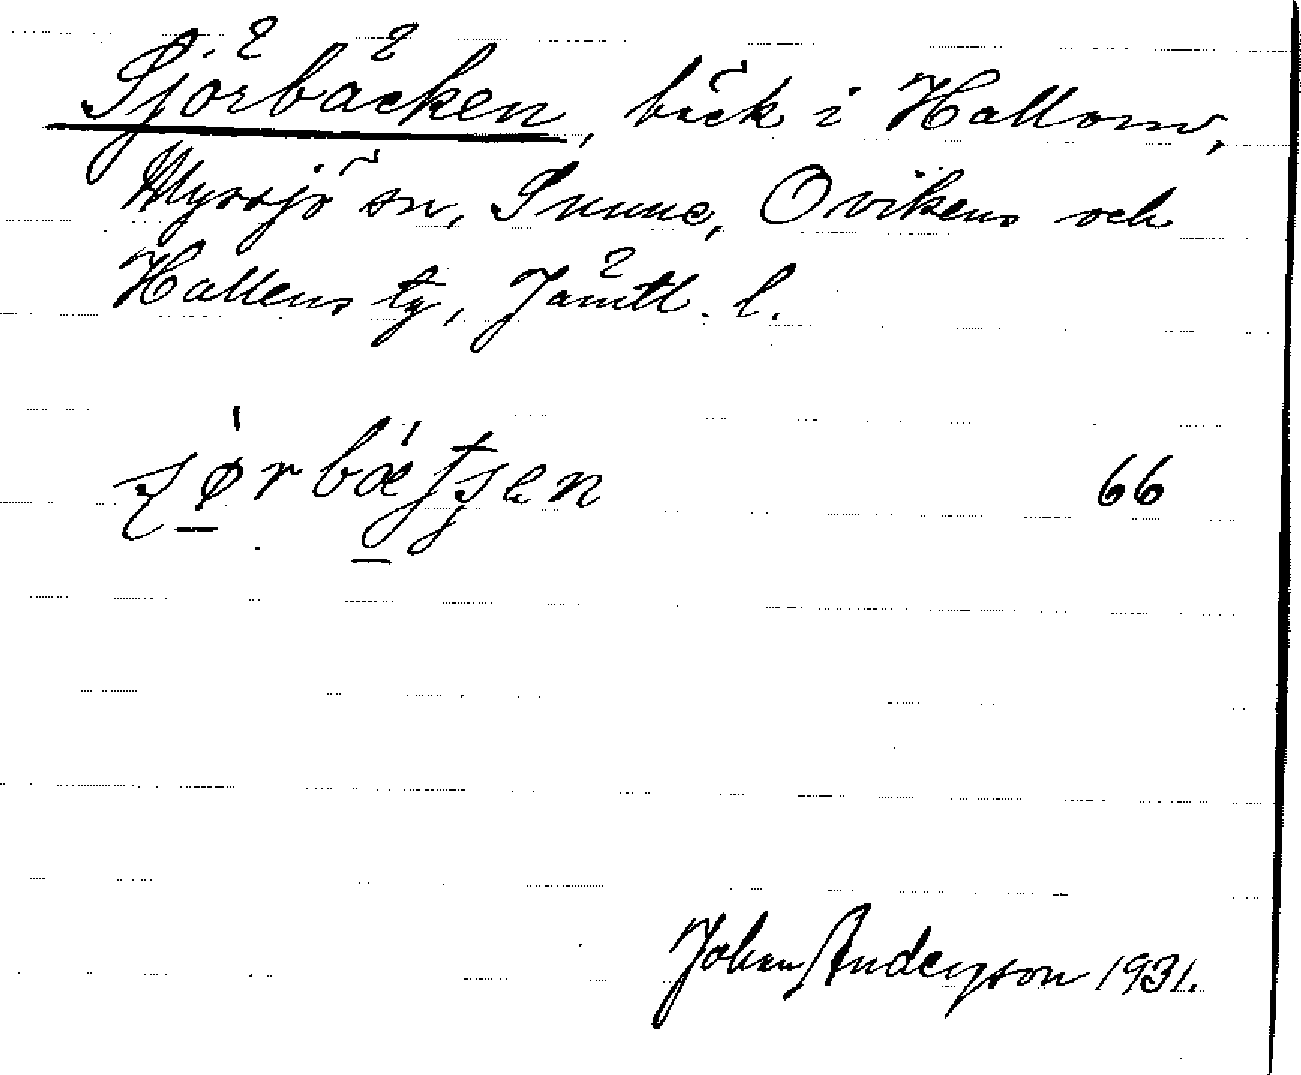 Sjörbäcken, bäck i Hallom,
Myssjö sn, Sunne, Ovikens och
Hallens tg, Jämtl. l.
66
Johan Anderson 1931.